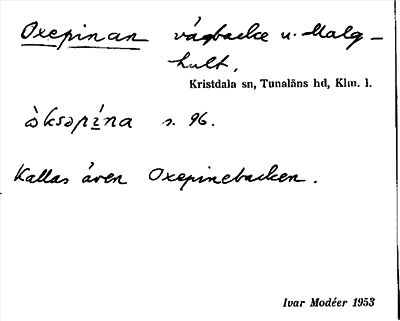 Oxepinan vägbacke u. Malg-
hult.
Kristdala sn, Tunaläns hd, Klm. l.
òksəpína s. 96.
Kallas även Oxepinebacken.
Ivar Modéer 1953